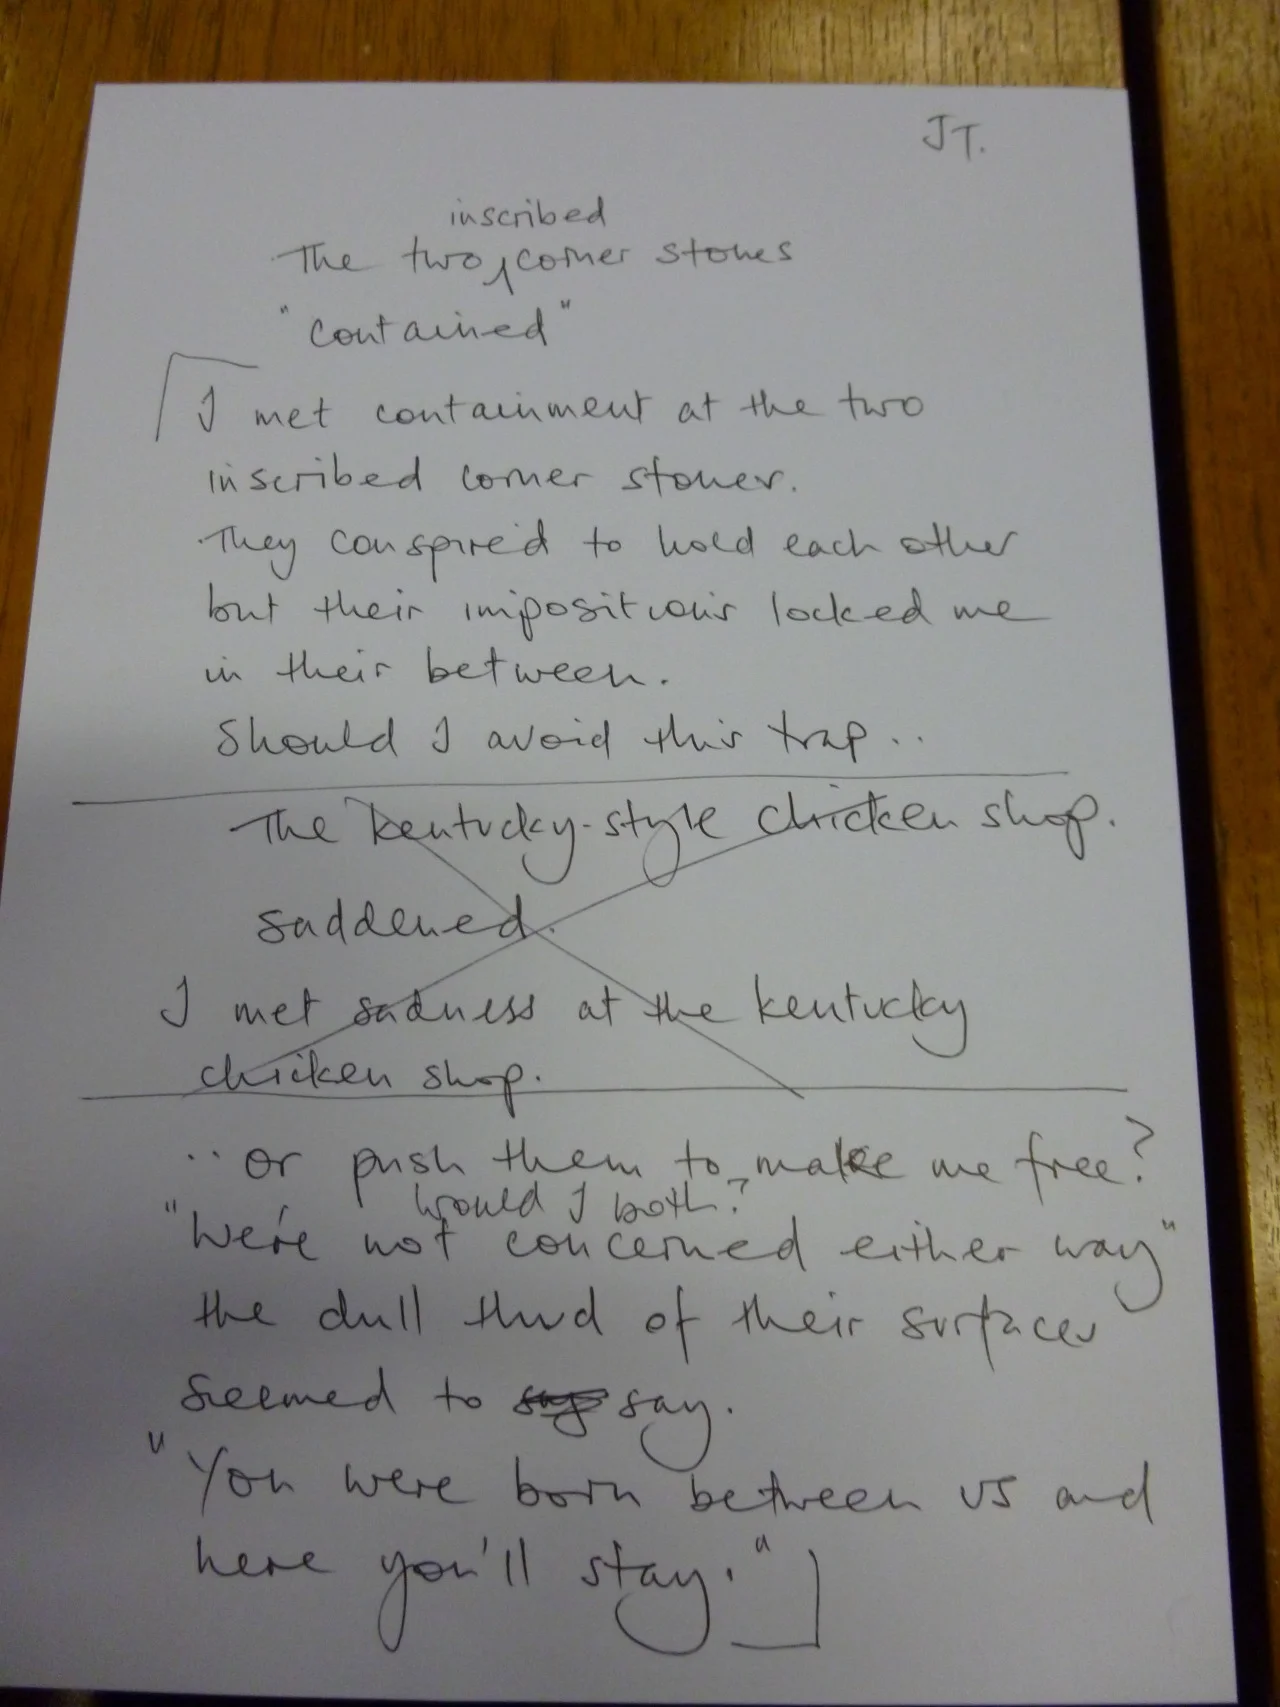 JT.
inscribed
The two corner stones
"contained"
I met containment at the two
inscribed corner stones.
They conspire'd to hold each other
but their impositions locked me
in their between.
Should I avoid this trap..
The Kentucky-style chicken shop.
saddened.
I met sadness at the Kentucky
chicken shop.
..or push them to make me free?
would I both?
"We're not concerned either way"
the dull thud of their surfaces
seemed to say say.
"You were born between us and
here you'll stay."